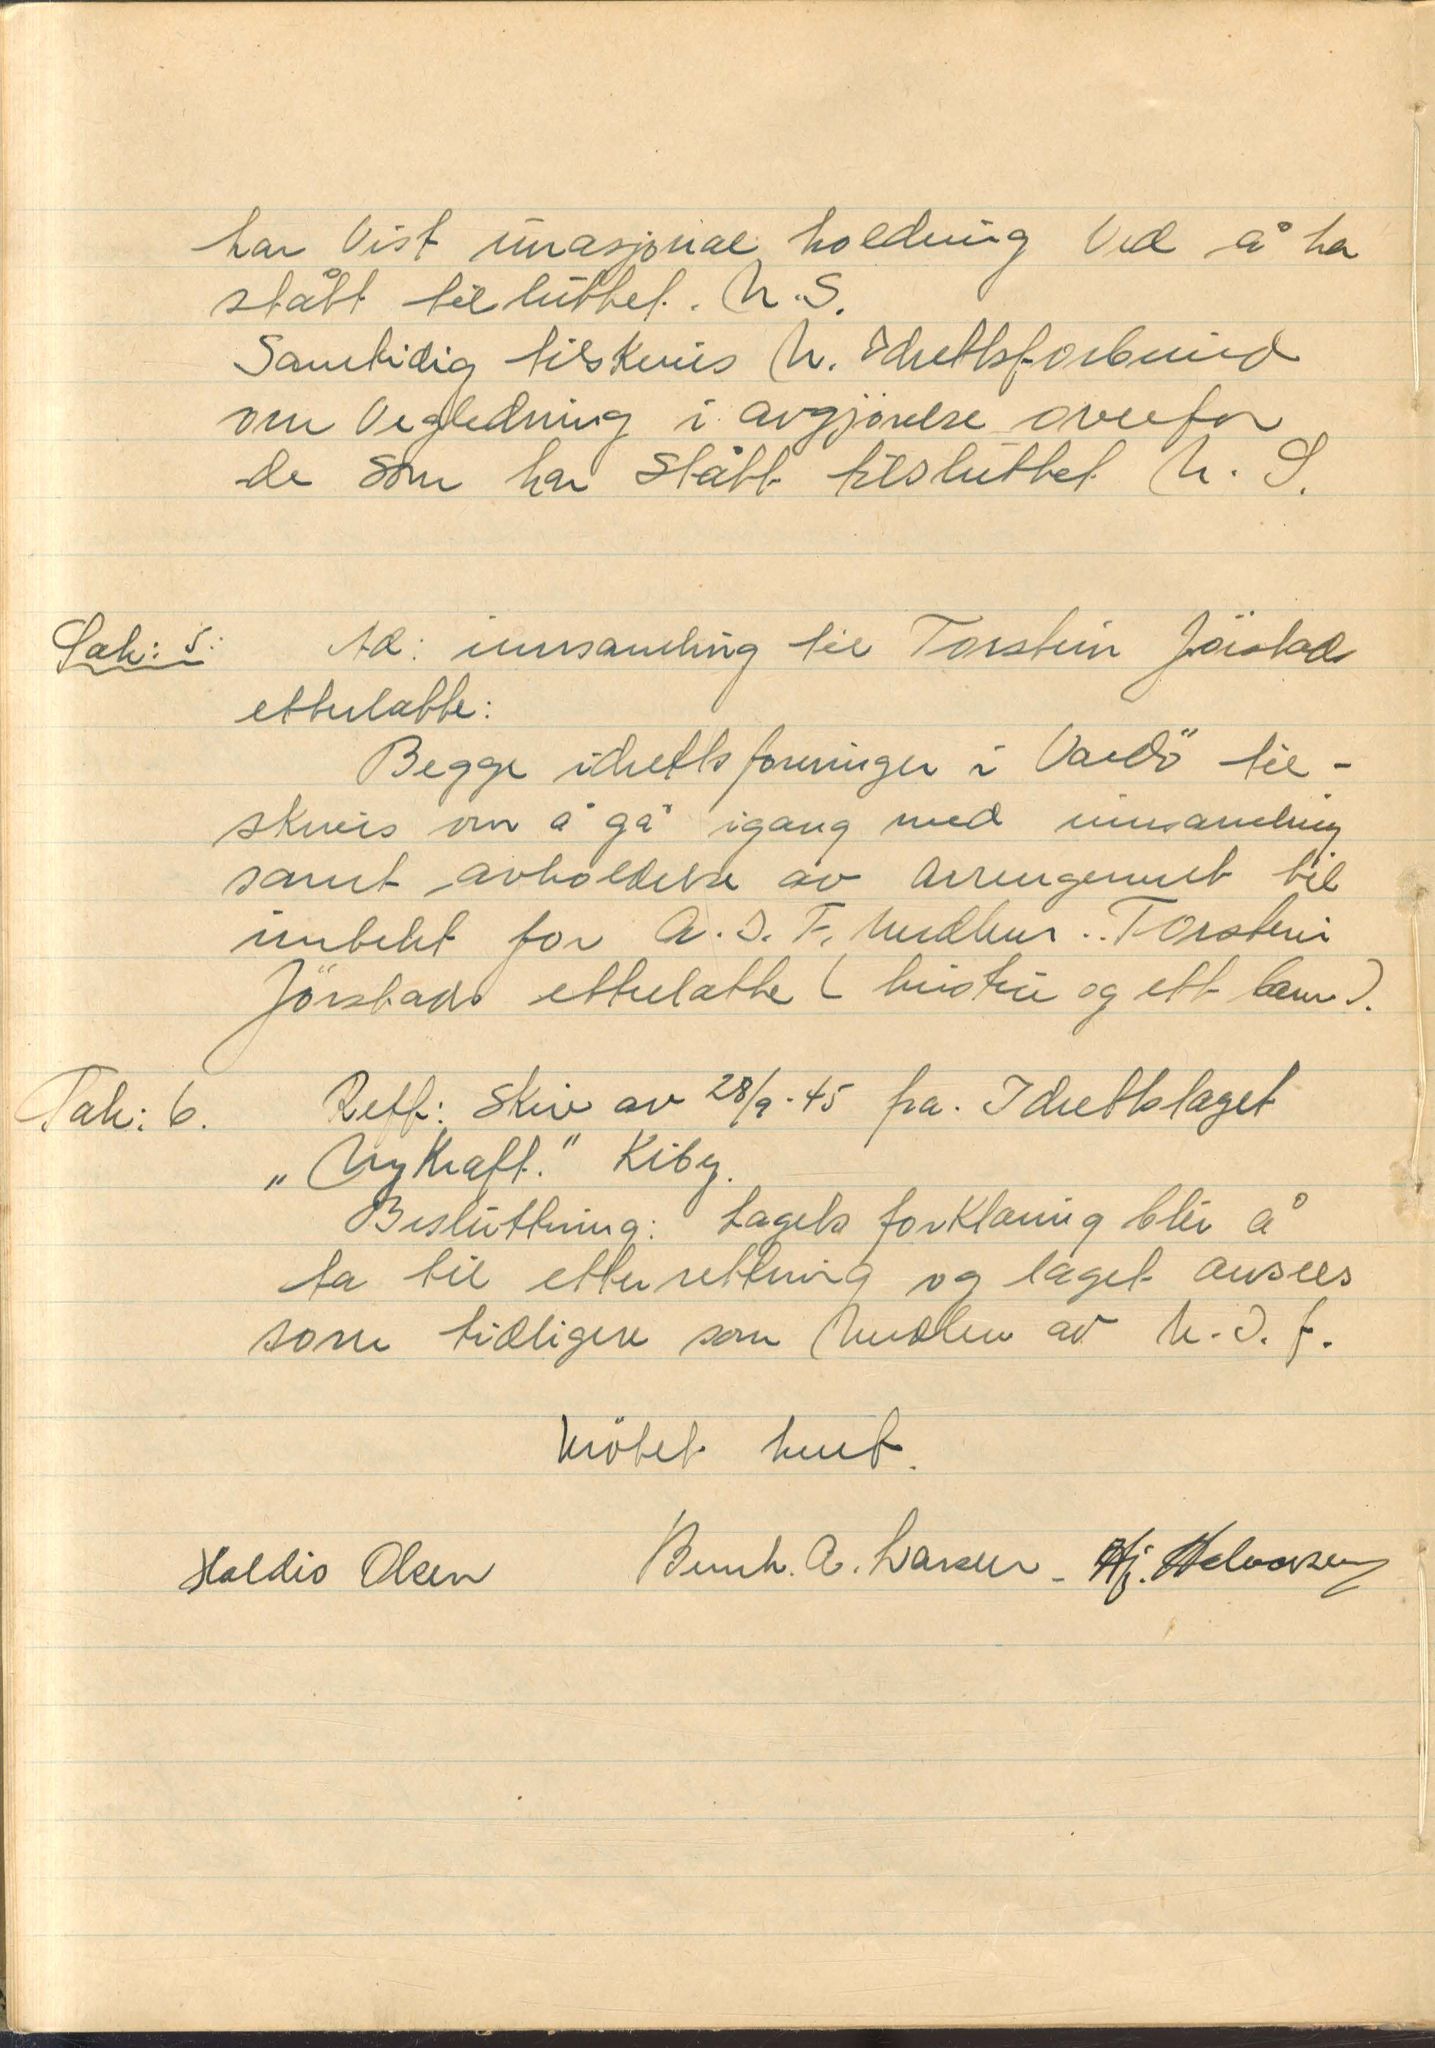 har vist unasjonal holdning ved å ha
stått tilsluttet. N.S.
Samtidig tilskrives N. Idrettsforbund
om vegledning i avgjørelse overfor
de som har stått tilsluttet N. S.
Sak: 5: Ad: innsamling til Torstein Jörstads
etterlatte:
Begge idrettsforeninger i Vardö til-
skrives om å gå igang med innsamling
samt avholdelse av arrengement til
inntekt for A.I.F. medlem. Torstein
Jörstads etterlatte (hustru og ett barn).
Sak: 6. Reff: Skriv av 28/9-45 fra. Idrettslaget
„Nykraft." Kiby.
Beslutning: Lagets forklaring blir å
ta til etterretning og laget ansees
som tidligere som medlem av N.I.F.
Mötet hevet.
Haldis Olsen Bernh. A. Larsen - Hj. Halvorsen